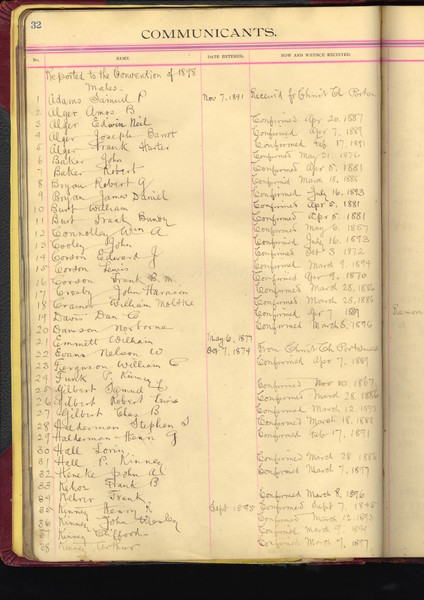 32
COMMUNICANTS.
No. NAME. DATE ENTERED. HOW AND WHENCE RECEIVED.
Reported to the Convention of 1898
Males.
1 Adams Samuel P Nov 7, 1891 Received fr Christ Ch
2 Alger Amos B
3 Alger Edwin Neil Confirmed Apr 20. 1887
4 Alger Joseph Confirmed Apr 7, 1889
5 Alger Frank Harter Confirmed Feb 17, 1891
6 Baker John Confirmed May 21, 1876
7 Baker Robert Confirmed Apr 5, 1881
8 Bryan Robert G Confirmed March 18, 1888
9 Bryan James Daniel Confirmed July 16, 1893
10 Burt William Confirmed Apr 5, 1881
11 Burt Frank Bundy Confirmed Apr 5, 1881
12 Connolley Wm A Confirmed May 6, 1887
13 Cooley John Confirmed July 16, 1893
14 Corson Edward J Confirmed Oct 3 1872
15 Corson Lewis Confirmed March 9, 1894
16 Corson Frank B. M. Confirmed Apr 9, 1870
17 Crosby John Harrison Confirmed March 28, 1886
18 Cramer William Moltke Confirmed March 28, 1886
19 Davis Dan C Confirmed Apr 7 1889
20 Dawson Norborne Confirmed March 8, 1896
21 Emmett William May 6, 1877
22 Evans Nelson W Oct 7, 1874 From Christ Ch Portsmouth
23 Ferguson William C Confirmed Apr 7, 1889
24 Funk P. Kinney
25 Gilbert Samuel Confirmed Nov 10, 1867
26 Gilbert Robert Confirmed March 28, 1886
27 Gilbert Chas B Confirmed March 12, 1893
28 Halderman Stephen S Confirmed March 18, 1888
29 Halderman Henry G Confirmed Feb 17, 1891
30 Hall
31 Hall P. Kinney Confirmed March 28 1886
32 John Confirmed March 7, 1897
33 Kehoe Frank B
34 Kehrer Frank Confirmed March 8, 1896
35 Kinney Henry R Sept 1845 Confirmed Sept 7, 1845
36 Kinney John Confirmed March 12, 1893
37 Kinney Clifford Confirmed March 9, 1894
38 Kinney Arthur Confirmed March 7, 1897